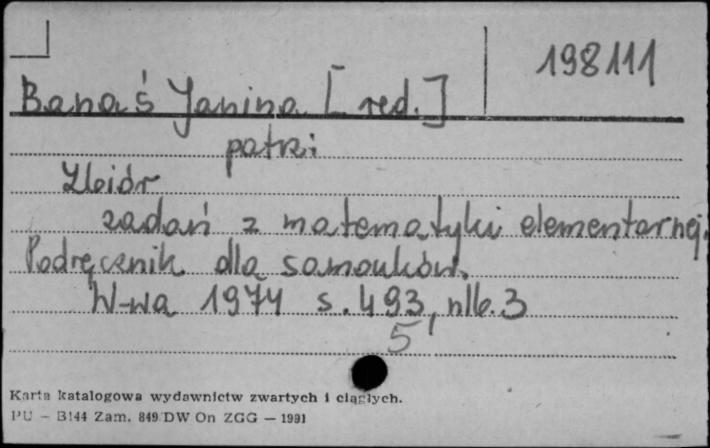 198111
Banaś Janina [red.]
patrz:
Zbiór
zadań z matematyki elementarnej.
Podręcznik dla samouków.
W-wa 1974 s. 493, nlb. 3
5
Karta katalogowa wydawnictw zwartych i ciągłych.
PU - B144 Zam. 849/DW On ZGG — 1991